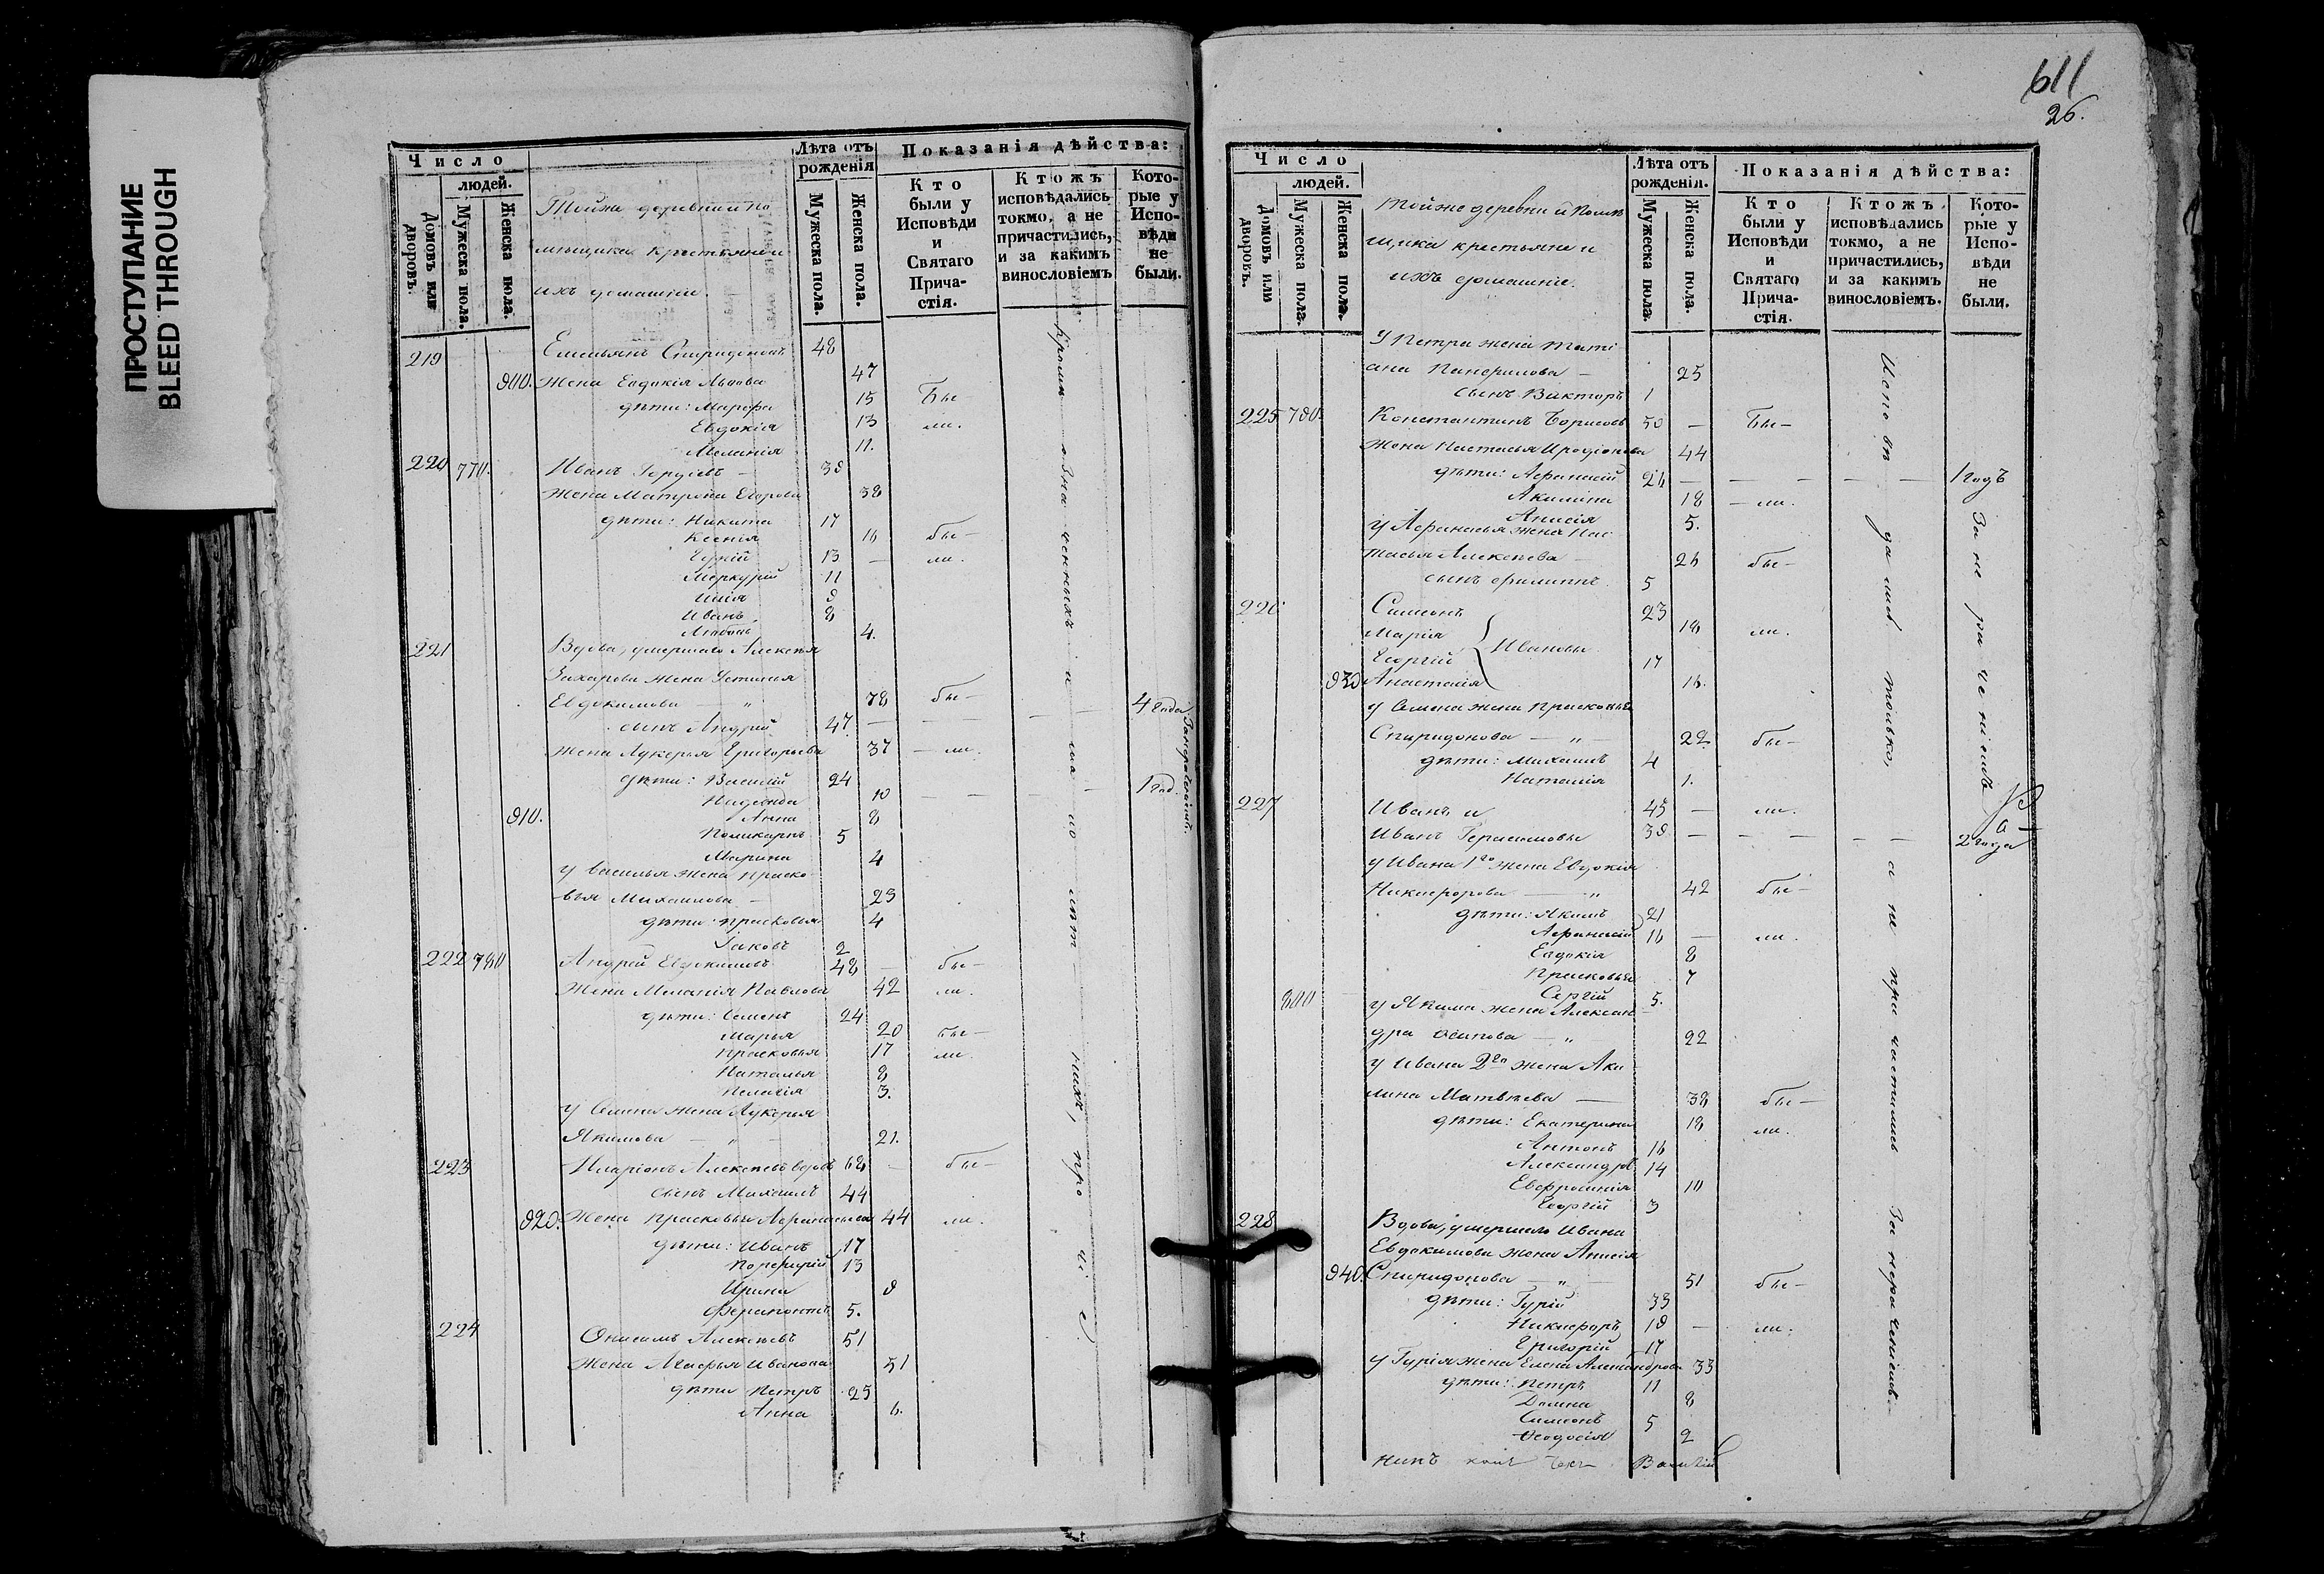 ПРОСТУПАНИЕ
BLEED THROUGH
Число
людей.
Домовъ или дворовъ.
Мужеска пола.
Женска пола.
Тойже деревни и по
мѣщика крестьяне и
ихъ домашніе.
Лѣта отъ рожденія
Мужеска пола.
Женска пола.
Показанія дѣйства:
Кто были у Исповѣди и Святаго Прича-стія.
Ктожъ исповѣдались токмо, а не причастились, и за какимъ винословіемъ
Кото-рые у Испо-вѣди не были.
219 Емельянъ Спиридоновъ 48
900. Жена Евдокія Львова 47
дѣти: Марфа 15 Бы-
Евдокія 13 ли.
Меланія 11.
220 770. Иванъ Гордѣевъ 39
Жена Матрона Егорова 38
дѣти: Никита 17
Ксенія 16 бы-
13 ли.
Меркурій 11
Илія 9
Иванъ 8
Любовь 4.
221 Вдова, умершаго Алексѣя
Захарова жена Устинья
Евдокимова — " 78 бы-
сынъ Андрей 47. 4 года
жена Лукерья Григорьева 37 ли.
дѣти: Василій 24 1 год.
Надежда 10
910. Анна 8
Поликарпъ 5
Марина 4
у Василья жена Праско
вья Михаилова 23
дѣти: Прасковья 4
Іаковъ 2
222 780 Андрей Евдокимовъ 48 бы-
Жена Меланія Павлова 42 ли.
дѣти: Семенъ 24
Марья 20 бы-
Прасковья 17 ли.
Наталья 8
Пелагія 3.
у Семена жена Лукерья
Якимова — " 21.
223 Иларіонъ Алексѣевъ вдовъ 68 бы-
сынъ Михаилъ 44
920. Жена Прасковья Афанасьева 44 ли.
дѣти: Иванъ 17
Порфирій 13
Ирина 9
Ферапонтъ 5.
224 Онисимъ Алексѣевъ 51
Жена Агафья Иванова 51
дѣти Петръ 25
Анна 6.
Кромѣ означенныхъ
прочіе
611
26.
Число
людей.
Домовъ или дворовъ.
Мужеска пола.
Женска пола.
Тойже деревни и помѣ
щика крестьяне и
ихъ домашніе.
Лѣта отъ рожденія.
Мужеска пола.
Женска пола.
Показанія дѣйства:
Кто были у Исповѣди и Святаго Прича-стія.
Ктожъ исповѣдались токмо, а не причастились, и за какимъ винословіемъ.
Кото-рые у Испо-вѣди не были.
У Петра жена Тати
ана 25
сынъ Викторъ 1
225 790. Константинъ Борисовъ 50 Бы-
Жена Настасья Иродіонова 44
дѣти: Афанасій 26 1 годъ
Акилина 18 ли.
Анисія 5.
у Афанасья жена Нас
тасья Алексѣева 26 бы-
сынъ Филиппъ 5
226 Симеонъ 23
Марія 18 ли.
Георгій Ивановы 17
930 Анастасія 16.
у Семена жена Прасковья
Спиридонова — " 22 бы-
дѣти: Михаилъ 4
Наталія 1.
227 Иванъ и 45 ли.
Иванъ Герасимовы 39 2 года
у Ивана 1го жена Евдокія
Никифорова — " 42 бы-
дѣти: Якимъ 21
Афанасій 16 ли.
Евдокія 8
Прасковья 7
800 Сергій 5.
у Якима жена Алексан
дра Осипова — " 22
у Ивана 2го жена Аки
лина Матвѣева — 38 бы-
дѣти: Екатерина 18 ли.
Антонъ 16
Александръ 14
Евфросинія 10
Георгій 3
228 Вдова, умершаго Ивана
Евдокимова жена Анисія
940. Спиридонова — " 51 бы-
дѣти: Гурій 33
Никифоръ 19 ли.
Григорій 17
у Гурія жена Елена Александрова 33
дѣти: Петръ 11
Домна 8
Симеонъ 5
Ѳеодосія 2
Исповѣдались только, а не причастились За нераченіемъ
За нераченіемъ